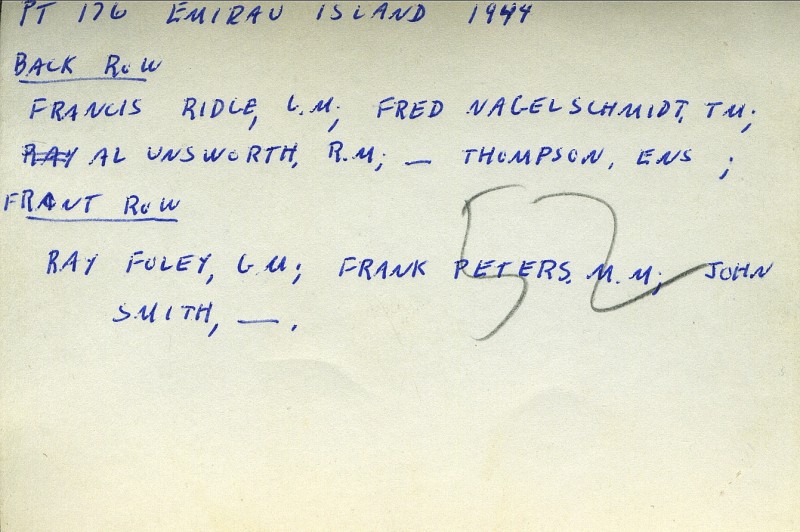 PT 176 EMIRAU ISLAND 1944
BACK ROW
FRANCIS RIDLE, G.M; FRED NAGELSCHMIDT, TM;
RAY AL UNSWORTH, R.M; — THOMPSON, ENS ;
FRANT ROW
RAY FOLEY, G.M; FRANK PETERS, M.M; JOHN
SMITH, — .
52